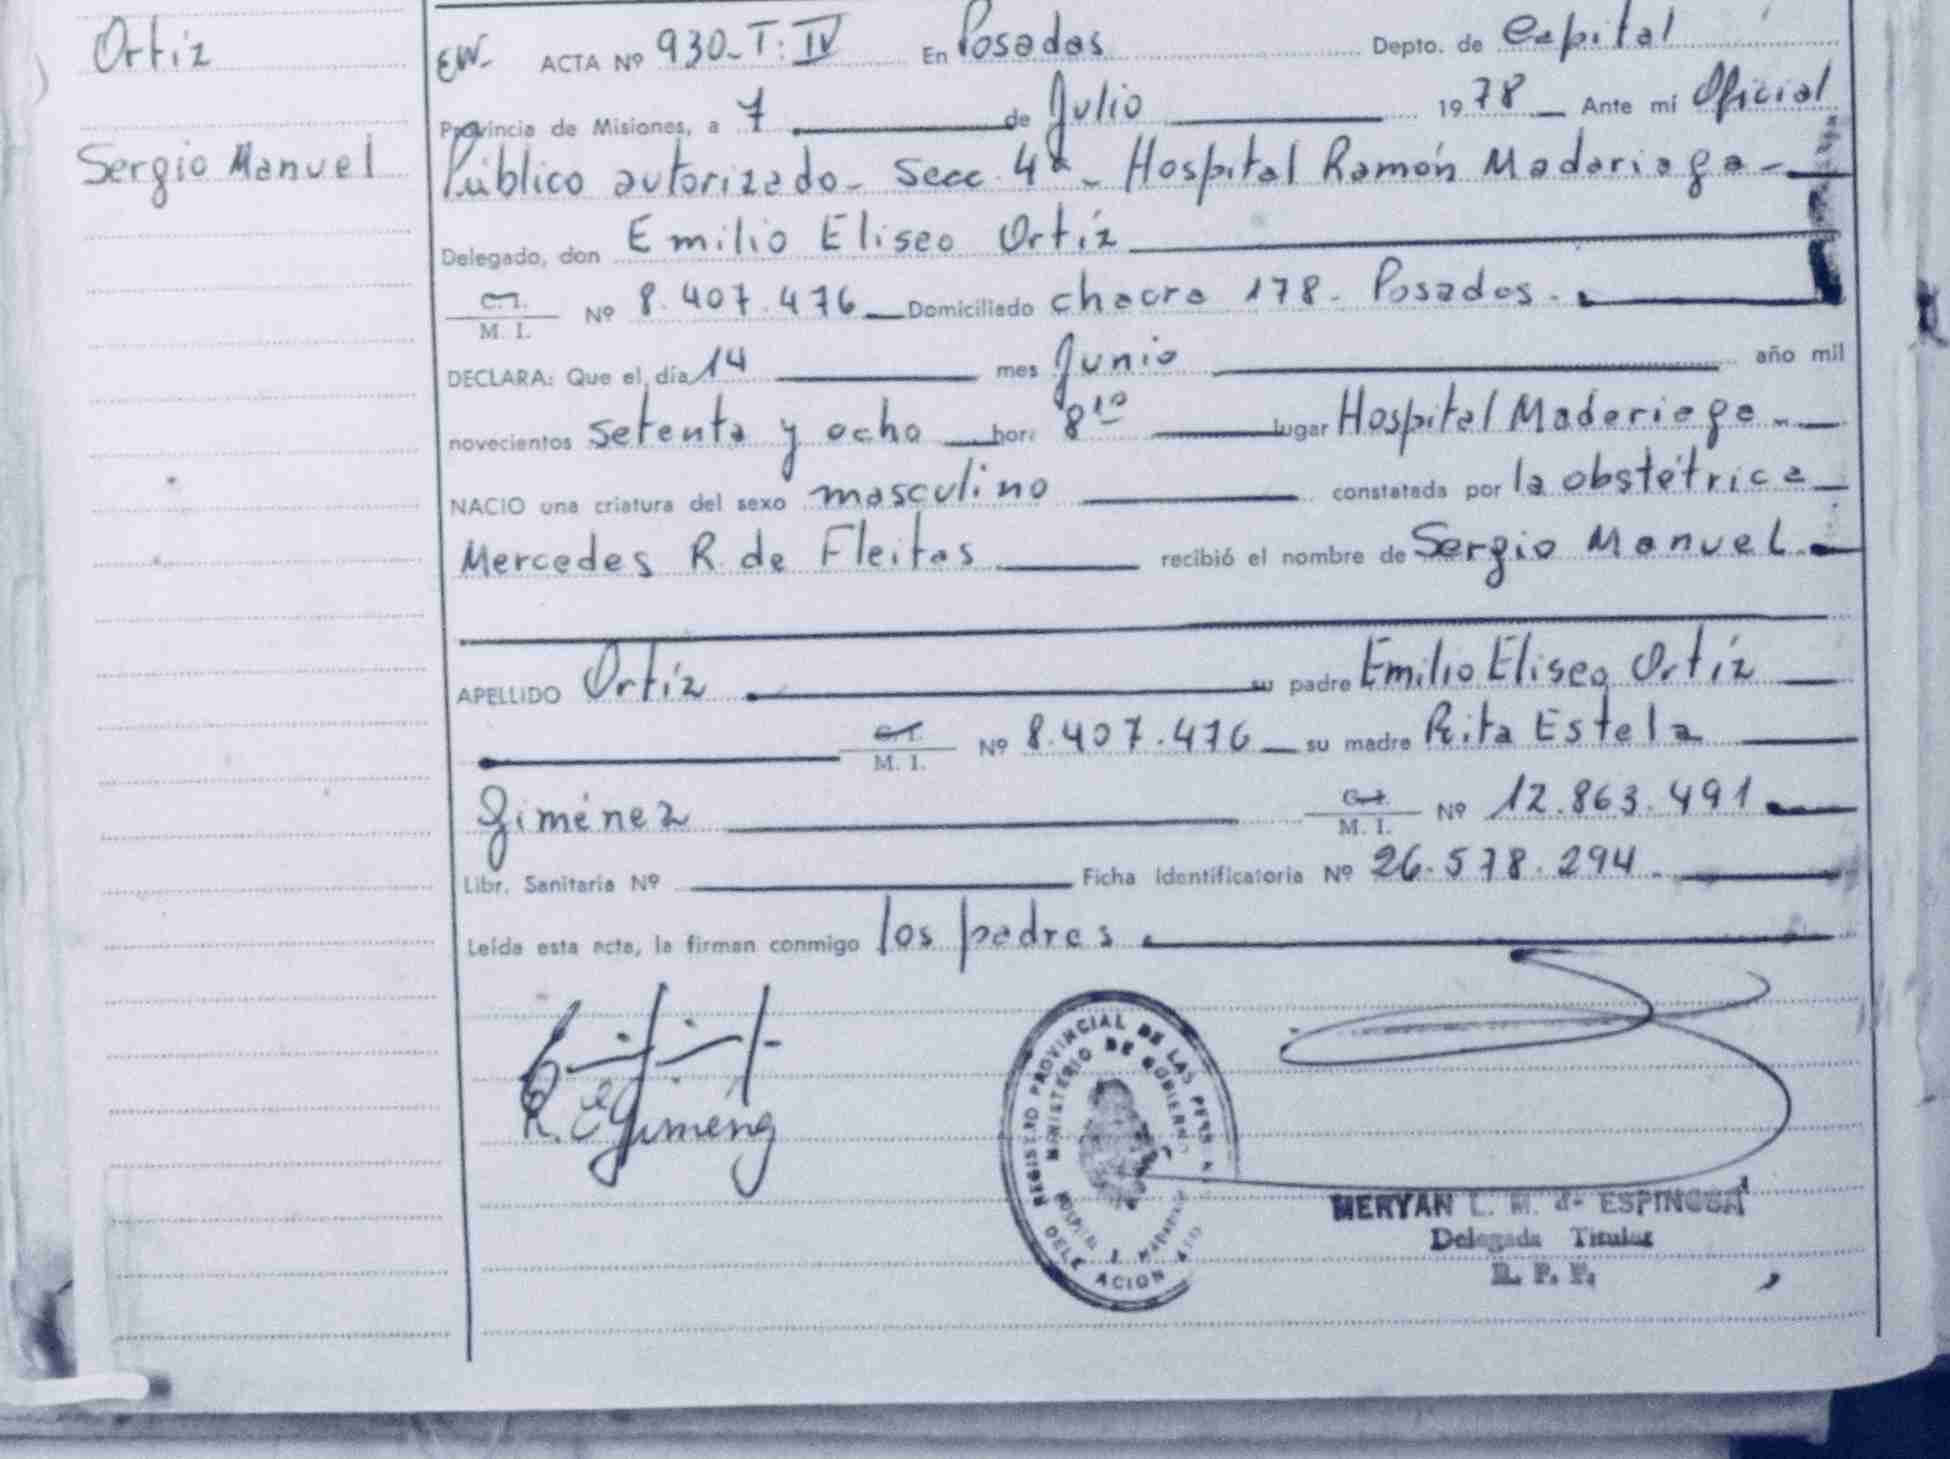 Ortíz
Sergio Manuel
EW- ACTA Nº 930-T:IV En Posadas Depto. de Capital
Provincia de Misiones, a 7 de Julio 1978 Ante mí Oficial
Público autorizado- Secc. 4ª- Hospital Ramón Madariaga-
Delegado, don Emilio Eliseo Ortíz
C.I. M. I. Nº 8.407.476 Domiciliado chacra 178- Posadas.
DECLARA: Que el día 14 mes Junio año mil
novecientos setenta y ocho hora 8¹⁰ lugar Hospital Madariaga-
NACIO una criatura del sexo masculino constatada por la obstétrica
Mercedes R. de Fleitas recibió el nombre de Sergio Manuel.
APELLIDO Ortíz su padre Emilio Eliseo Ortíz
C.I. M. I. Nº 8.407.476 su madre Rita Estela
Giménez C.I. M. I. Nº 12.863.491
Libr. Sanitaria Nº Ficha Identificatoria Nº 26.578.294.
Leída esta acta, la firman conmigo los padres
R. E Gimenez
REGISTRO PROVINCIAL DE LAS PERS
MINISTERIO DE GOBIERNO
HOSPITAL
DELEGACION
MERYAN L. M. de ESPINOSA
Delegada Titular
R. P. P.